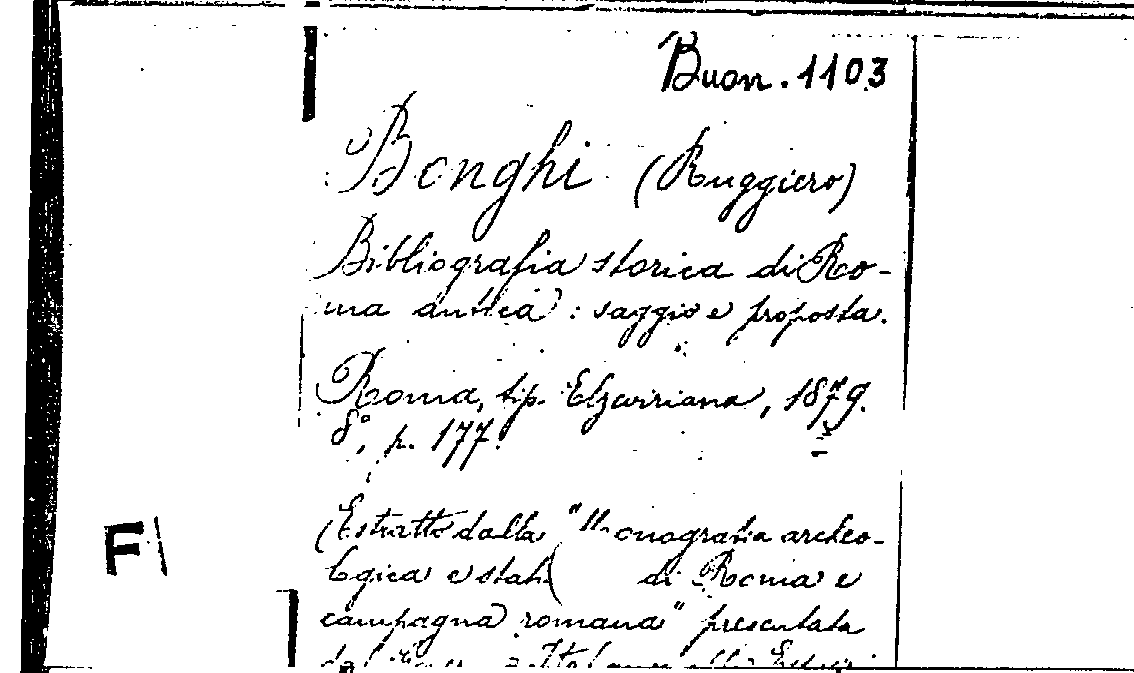 Buon. 1103
Bonghi (Ruggiero)
Bibliografia storica di Ro-
ma antica: saggio e proposta.
Roma, tip. Elzeviriana, 1879.
8°, p. 177.
(Estratto dalla "Monografia archeo-
logica e stat( di Roma e
campagna romana" presentata
F|